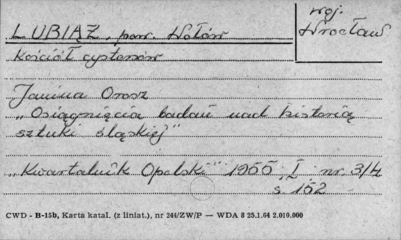 LUBIĄŻ, pow. Wołów
woj. Wrocław
Kościół cystersów
Janina Orosz
"Osiągnięcia badań nad historią
sztuki śląskiej"
"Kwartalnik Opolski" 1955, I nr 3/4
s. 162
CWD - B-15b, Karta katal. (z liniat.), nr 244/ZW/P — WDA 8 25.1.64 2.010.000